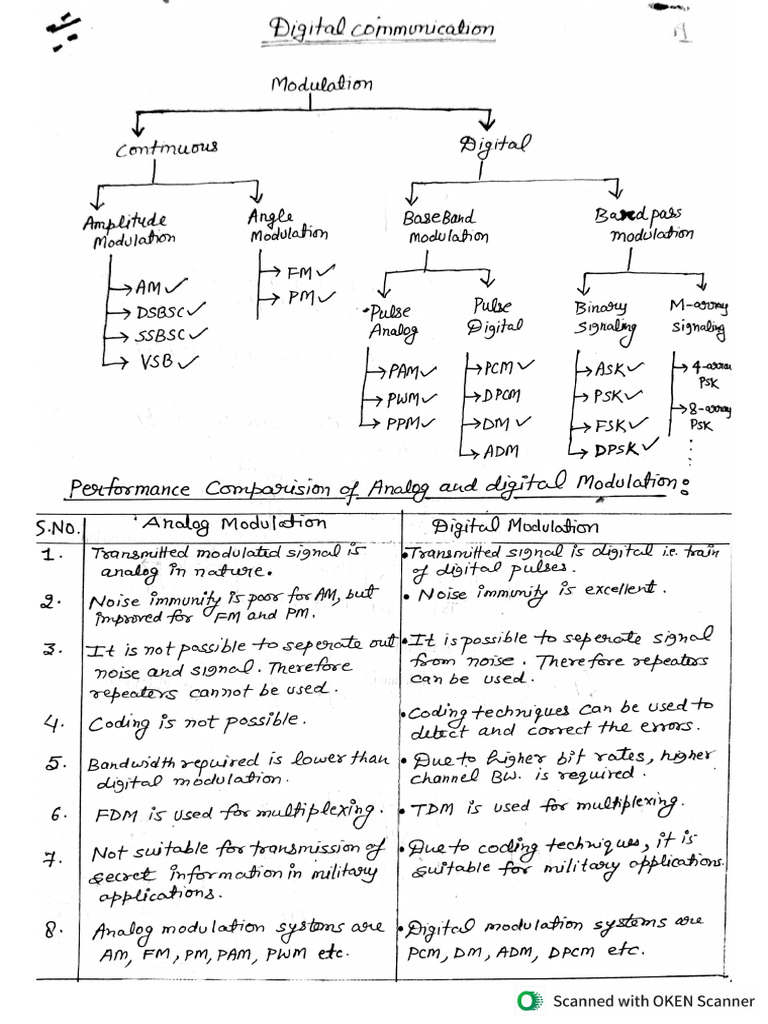 Digital communication
Modulation
Continuous
Digital
Amplitude
Modulation
Angle
Modulation
BaseBand
modulation
Bandpass
modulation
→ AM ✓
→ DSBSC ✓
→ SSBSC ✓
→ VSB ✓
→ FM ✓
→ PM ✓
Pulse
Analog
Pulse
Digital
Binary
Signaling
M-array
signaling
→ PAM ✓
→ PWM ✓
→ PPM ✓
→ PCM ✓
→ DPCM
→ DM ✓
→ ADM
→ ASK ✓
→ PSK ✓
→ FSK ✓
→ DPSK ✓
→ 4-array
PSK
→ 8-array
PSK
Performance Comparision of Analog and digital Modulation:
S.NO. Analog Modulation Digital Modulation
1. Transmitted modulated signal is
analog in nature.
• Transmitted signal is digital i.e. train
of digital pulses.
2. Noise immunity is poor for AM, but
improved for FM and PM.
• Noise immunity is excellent.
3. It is not possible to seperate out
noise and signal. Therefore
repeaters cannot be used.
• It is possible to seperate signal
from noise. Therefore repeaters
can be used.
4. Coding is not possible.
• Coding techniques can be used to
detect and correct the errors.
5. Bandwidth required is lower than
digital modulation.
• Due to higher bit rates, higher
channel BW. is required.
6. FDM is used for multiplexing.
• TDM is used for multiplexing.
7. Not suitable for transmission of
secret information in military
applications.
• Due to coding techniques, it is
suitable for military applications.
8. Analog modulation systems are
AM, FM, PM, PAM, PWM etc.
• Digital modulation systems are
PCM, DM, ADM, DPCM etc.
Scanned with OKEN Scanner